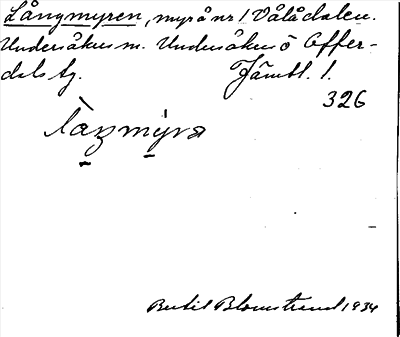 Långmyren, myrå nr 1 Vålådalen.
Undersåkers sn. Undersåkers o Offer-
dals tg. Jämtl. l.
326
làŋmýra
Bertil Blomstrand 1934